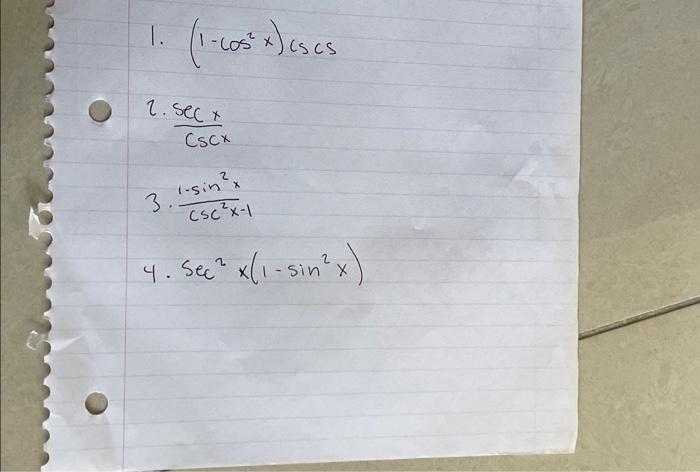 1. (1-cos² x) cscs
2. sec x
csc x
3. 1-sin² x
csc² x-1
4. sec² x(1-sin² x)